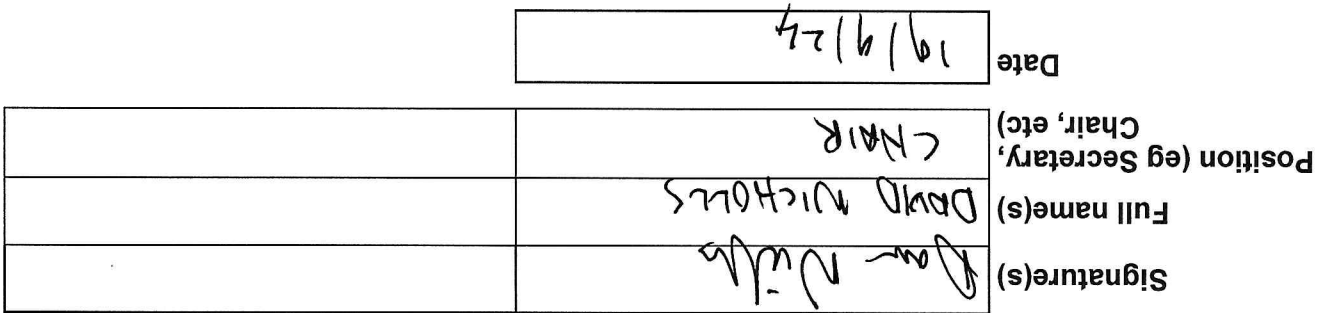 Signature(s)
Full name(s) DAVID NICHOLLS
Position (eg Secretary,
Chair, etc) CHAIR
Date 19/9/24